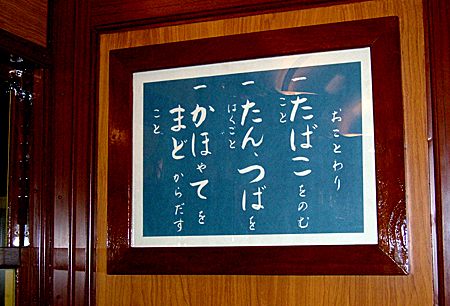 おことわり
一たばこをのむ
こと
一たん、つばを
はくごと
一かほやてを
まどからだす
こと